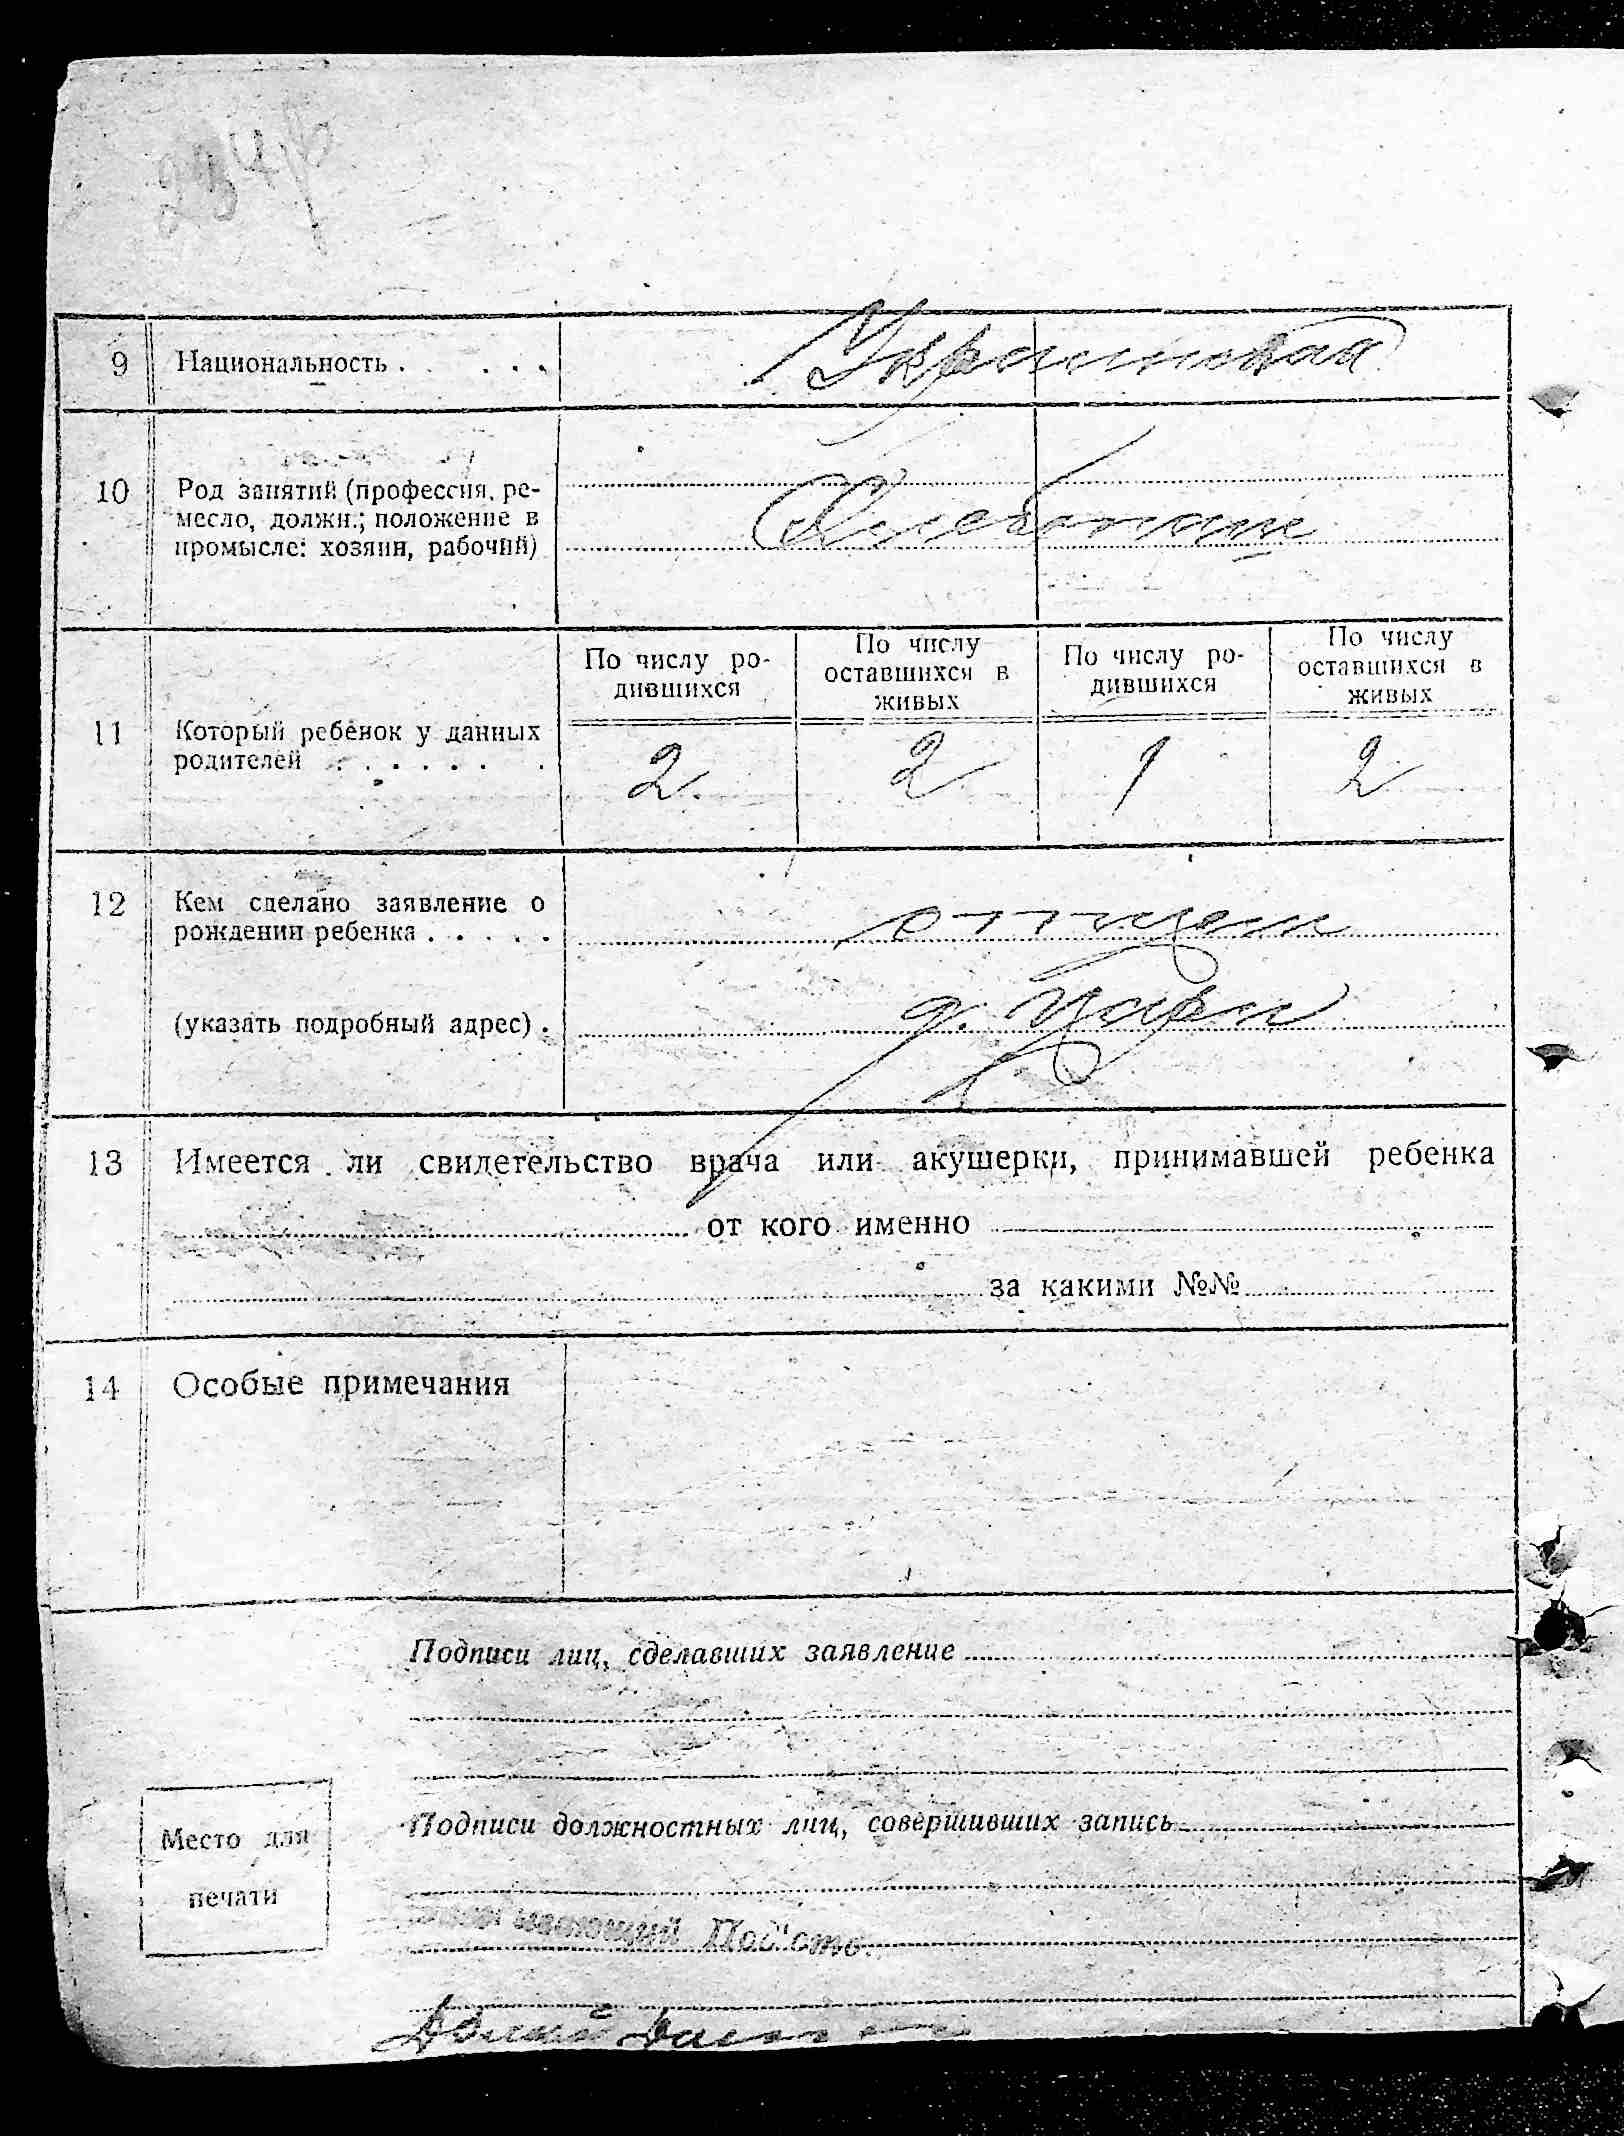 234
9 Национальность . . . . . Украинская
10 Род занятий (профессия, ре-
месло, должн.; положение в
промысле: хозяин, рабочий)
Хлебопаш
По числу ро-
дившихся
По числу
оставшихся в
живых
По числу ро-
дившихся
По числу
оставшихся в
живых
11 Который ребенок у данных
родителей . . . . . .
2. 2 1 2
12 Кем сделано заявление о
рождении ребенка . . . . .
отцем
(указать подробный адрес) .
д.
13 Имеется ли свидетельство врача или акушерки, принимавшей ребенка
от кого именно
за какими №№
14 Особые примечания
Подписи лиц, сделавших заявление
Подписи должностных лиц, совершивших запись
Место для
печати